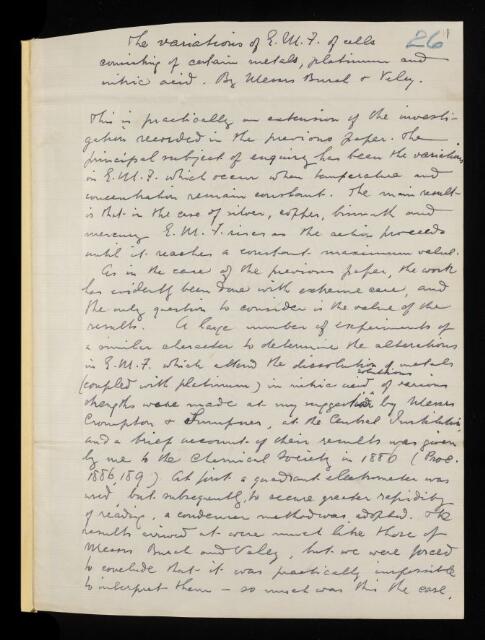 The variations of E.M.F. of cells
consisting of certain metals, platinum and
nitric acid. By Messrs Burch & Veley.
26
This is practically an extension of the investi-
gation recorded in the previous paper. The
principal subject of enquiry has been the variation
in E.M.F. which occur when temperature and
concentration remain constant. The main result
is that in the case of silver, copper, bismuth and
mercury E.M.F. rises as the action proceeds
until it reaches a constant maximum value.
As in the case of the previous paper, the work
has evidently been done with extreme care, and
the only question to consider is the value of the
results. A large number of experiments of
a similar character to determine the alterations
in E.M.F. which attend the dissolution of metals
(coupled with platinum) in nitric acid solutions of various
strengths were made at my suggestion by Messrs
Crompton & , at the Central Institution
and a brief account of their results was given
by me to the Chemical Society in 1886 (Proc.
1886, 189). At first a quadrant electrometer was
used but subsequently, to secure greater rapidity
of reading, a condenser method was adopted. The
results arrived at were much like those of
Messrs Burch and Veley, but we were forced
to conclude that it was practically impossible
to interpret them – so much was this the case,